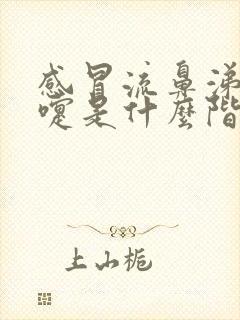 感冒流鼻涕
嚏是什麼階
上山栀